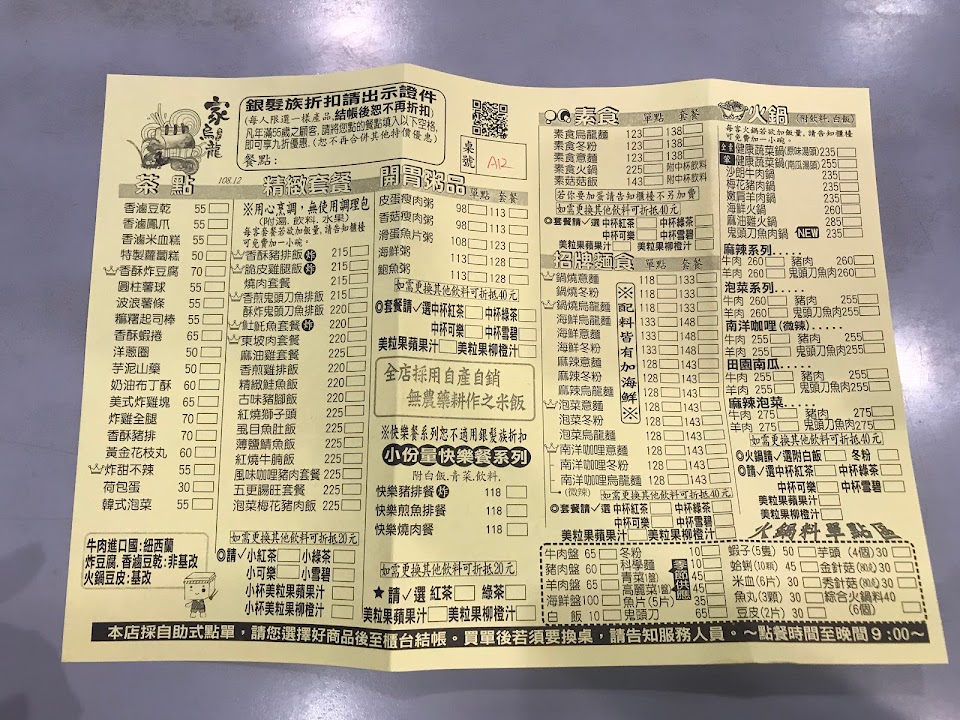 家烏龍
銀髮族折扣請出示證件
(每人限選一樣產品,結帳後恕不再折扣)
凡年滿55歲之顧客,請將您點的餐點填入以下空格,
即可享九折優惠。(恕不再合併其他特價優惠)
餐點:
桌號
A12
茶點
108.12
香滷豆乾 55
香滷鳳爪 55
香滷米血糕 55
特製蘿蔔糕 50
香酥炸豆腐 70
圓柱薯球 55
波浪薯條 55
糯糬起司棒 55
香酥蝦捲 65
洋蔥圈 50
芋泥山藥 50
奶油布丁酥 60
美式炸雞塊 65
炸雞全腿 70
香酥豬排 70
黃金花枝丸 60
炸甜不辣 55
荷包蛋 30
韓式泡菜 55
牛肉進口國:紐西蘭
炸豆腐.香滷豆乾:非基改
火鍋豆皮:基改
精緻套餐
※用心烹調,無使用調理包
(附湯.飲料.水果)
每客套餐若欲加飯量,請告知櫃檯
可免費加一小碗。
香酥豬排飯 炸 215
脆皮雞腿飯 炸 215
燒肉套餐 215
香煎鬼頭刀魚排飯 215
酥炸鬼頭刀魚排飯 220
𩵚魠魚套餐 炸 220
東坡肉套餐 220
麻油雞套餐 225
香煎雞排飯 220
精緻鮭魚飯 220
古味豬腳飯 225
紅燒獅子頭 225
虱目魚肚飯 225
薄鹽鯖魚飯 225
紅燒牛腩飯 225
風味咖哩豬肉套餐 225
五更腸旺套餐 225
泡菜梅花豬肉飯 225
如需更換其他飲料可折抵20元
◎請✓小紅茶 小綠茶
小可樂 小雪碧
小杯美粒果蘋果汁
小杯美粒果柳橙汁
開胃粥品 單點 套餐
皮蛋瘦肉粥 98 113
香菇瘦肉粥 98 113
滑蛋魚片粥 108 123
海鮮粥 113 128
鮑魚粥 113 128
如需更換其他飲料可折抵40元
◎套餐請✓選中杯紅茶 中杯綠茶
中杯可樂 中杯雪碧
美粒果蘋果汁 美粒果柳橙汁
全店採用自產自銷
無農藥耕作之米飯
※快樂餐系列恕不適用銀髮族折扣
小份量快樂餐系列
附白飯.青菜.飲料.
快樂豬排餐 炸 118
快樂煎魚排餐 118
快樂燒肉餐 118
如需更換其他飲料可折抵20元
★請✓選 紅茶 綠茶
美粒果蘋果汁 美粒果柳橙汁
素食 單點 套餐
素食烏龍麵 123 138
素食冬粉 123 138
素食意麵 123 138
素食火鍋 235 附中杯飲料
素菇菇飯 143 附中杯飲料
若你要加蛋請告知櫃檯不另加費
如需更換其他飲料可折抵40元
◎套餐請✓選 中杯紅茶 中杯綠茶
中杯可樂 中杯雪碧
美粒果蘋果汁 美粒果柳橙汁
招牌麵食 單點 套餐
※配料皆有加海鮮※
鍋燒意麵 118 133
鍋燒冬粉 118 133
鍋燒烏龍麵 118 133
海鮮烏龍麵 133 148
海鮮意麵 133 148
海鮮冬粉 133 148
麻辣意麵 128 143
麻辣冬粉 128 143
麻辣烏龍麵 128 143
泡菜意麵 128 143
泡菜冬粉 128 143
泡菜烏龍麵 128 143
南洋咖哩意麵 128 143
南洋咖哩冬粉 128 143
南洋咖哩烏龍麵 128 143
(微辣) 如需更換其他飲料可折抵40元
◎套餐請✓選 中杯紅茶 中杯綠茶
中杯可樂 中杯雪碧
美粒果蘋果汁 美粒果柳橙汁
火鍋 (附飲料.白飯)
每客火鍋若欲加飯量,請告知櫃檯
可免費加一小碗。
健康蔬菜鍋(原味湯頭) 235
健康蔬菜鍋(南瓜湯頭) 255
沙朗牛肉鍋 235
梅花豬肉鍋 235
嫩肩羊肉鍋 235
海鮮火鍋 260
麻油雞火鍋 285
鬼頭刀魚肉鍋 NEW 235
麻辣系列.....
牛肉 260 豬肉 255
羊肉 260 鬼頭刀魚肉 255
泡菜系列.....
牛肉 260 豬肉 255
羊肉 260 鬼頭刀魚肉 255
南洋咖哩(微辣).....
牛肉 255 豬肉 255
羊肉 255 鬼頭刀魚肉 255
田園南瓜.....
牛肉 255 豬肉 255
羊肉 255 鬼頭刀魚肉 255
麻辣泡菜.....
牛肉 275 豬肉 275
羊肉 275 鬼頭刀魚肉 275
如需更換其他飲料可折抵40元
◎火鍋請✓選附白飯 冬粉
◎請✓選 中杯紅茶 中杯綠茶
中杯可樂 中杯雪碧
美粒果蘋果汁
美粒果柳橙汁
火鍋料單點區
牛肉盤 65 冬粉 10 蝦子(5隻) 50 芋頭 (4個) 30
豬肉盤 60 科學麵 10 蛤蜊(10顆) 45 金針菇 30
羊肉盤 65 青菜(盤) 45 米血(6片) 30 秀珍菇 30
海鮮盤 100 高麗菜(盤) 45 魚丸(3顆) 30 綜合火鍋料 40
白飯 10 魚片(5片) 35 豆皮(2片) 30 (6個)
鬼頭刀
季節供應
本店採自助式點單,請您選擇好商品後至櫃台結帳。買單後若須要換桌,請告知服務人員。~點餐時間至晚間9:00~